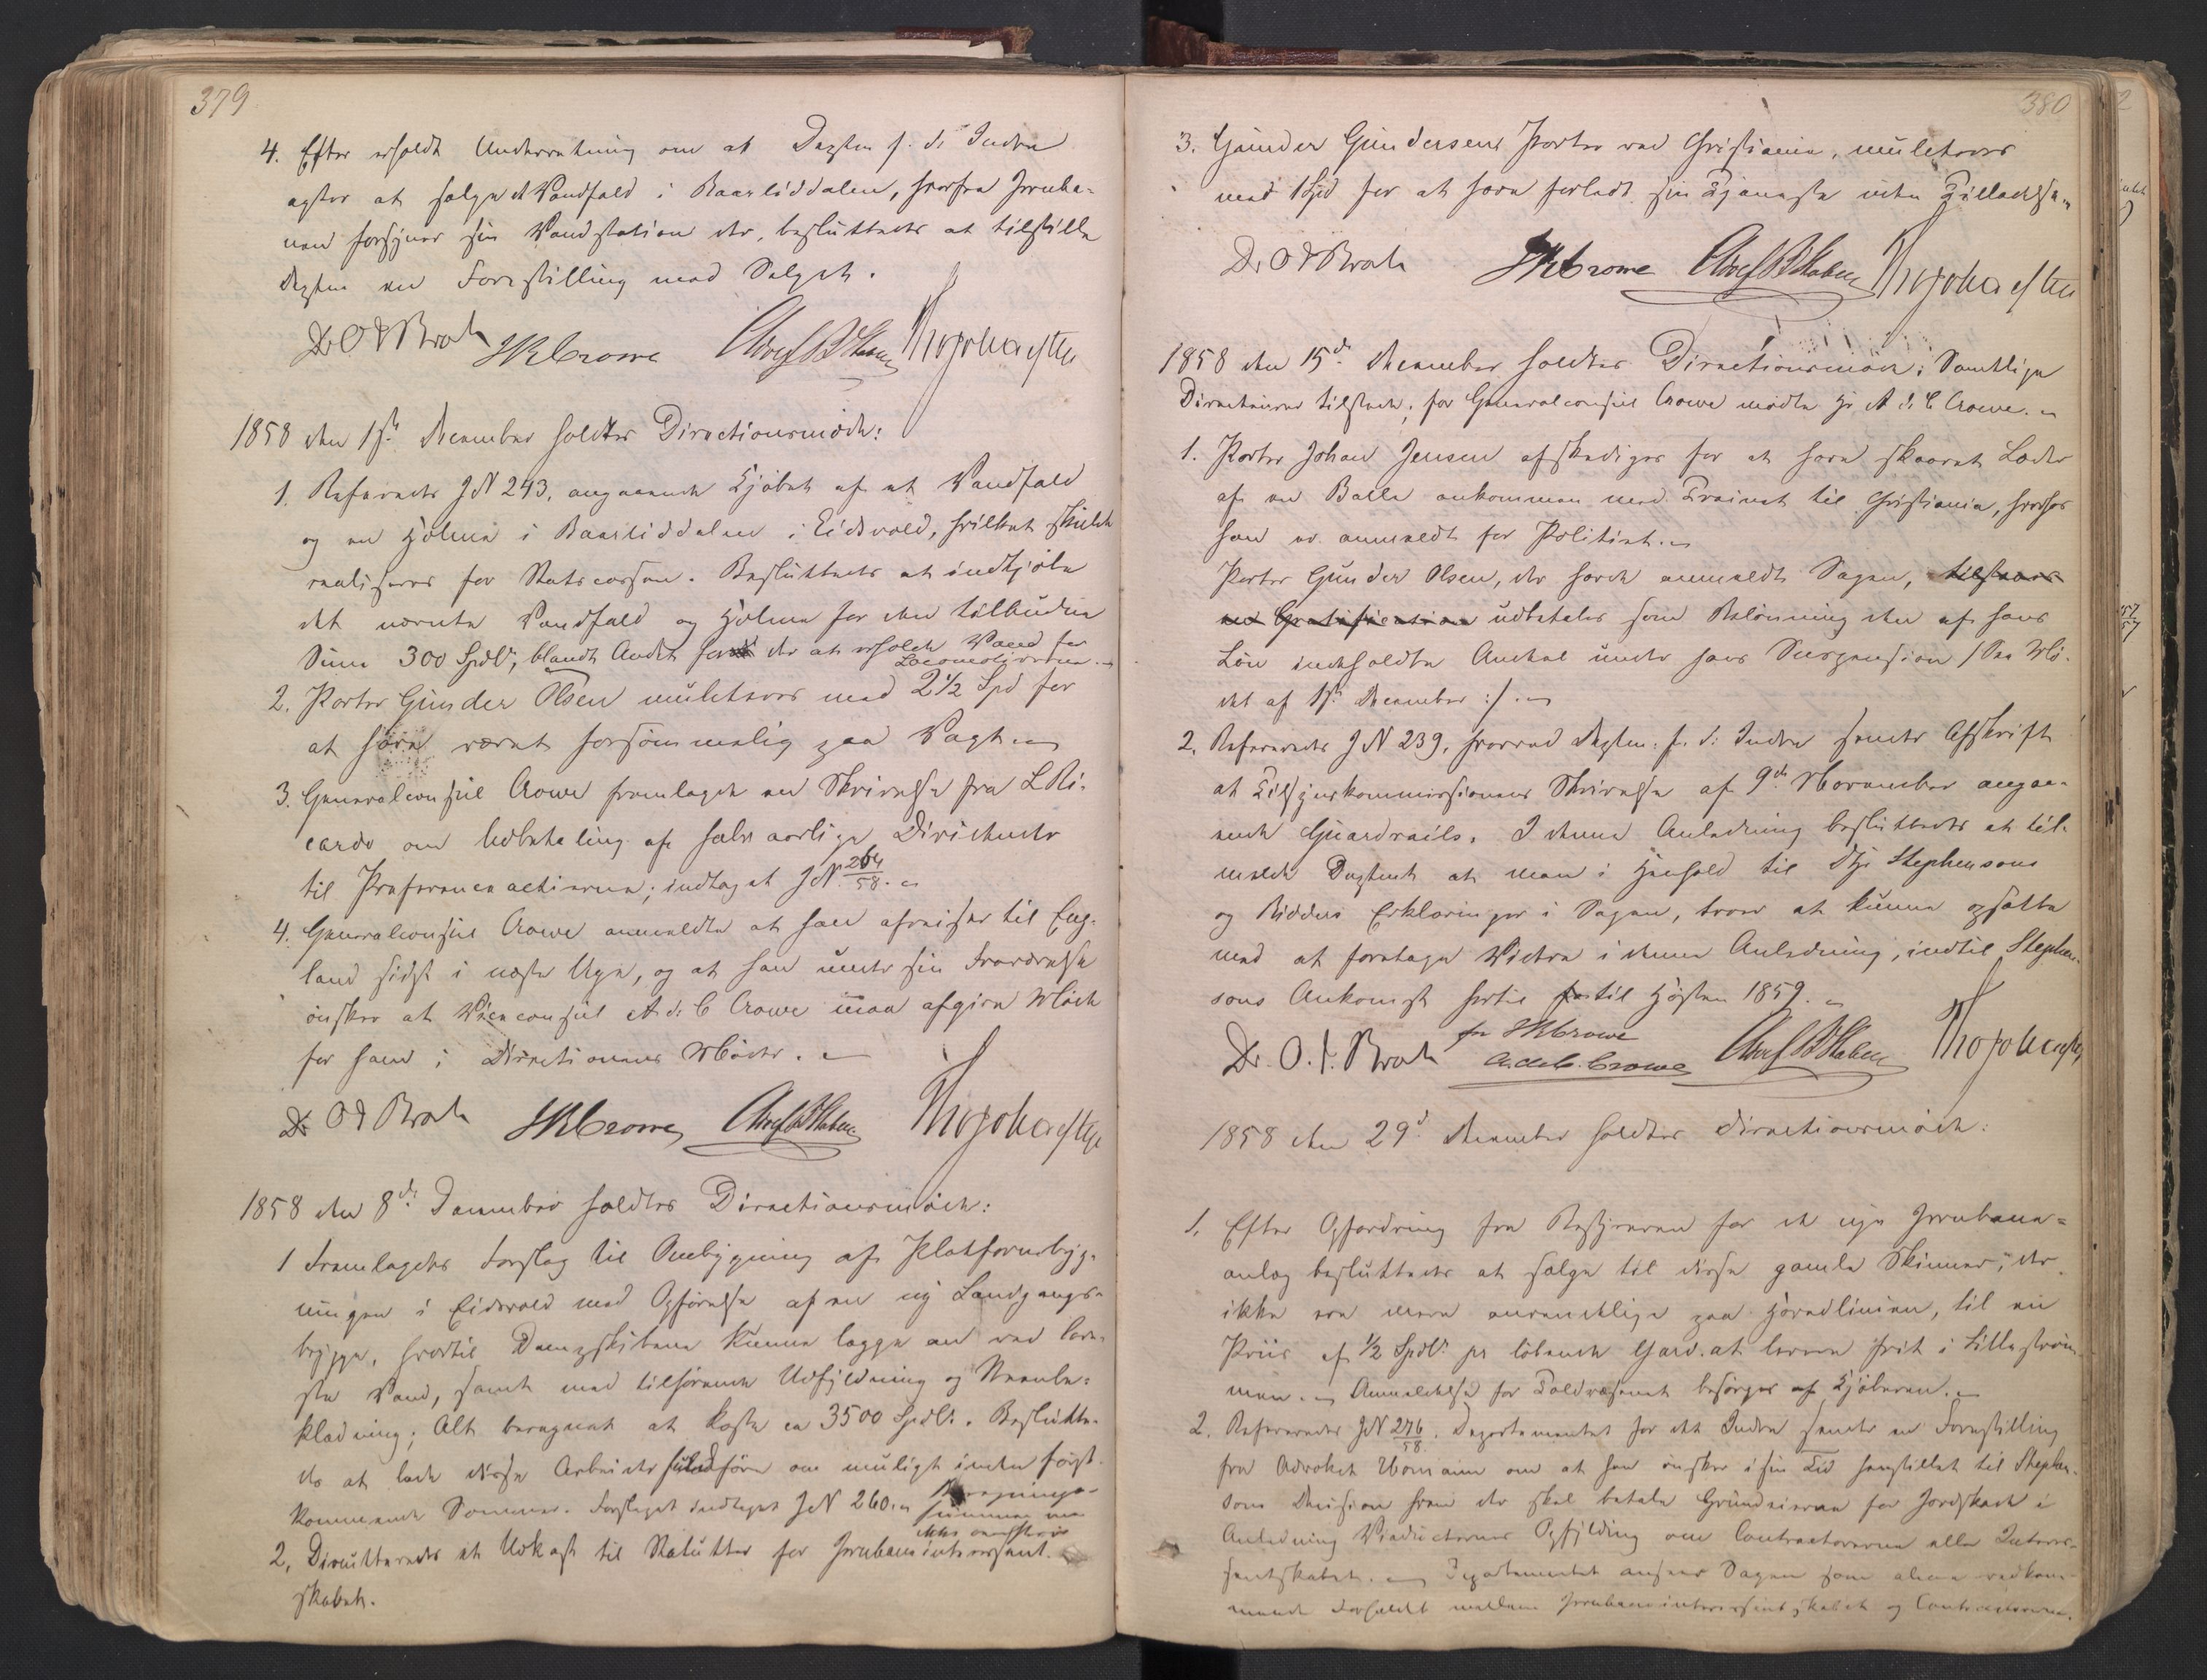 379
4. Efter erholdt Underretning om at Deptm f. d. Indre
agter at sælge et Vandfald i Baarliddalen, hvorfra Jernba-
nen forsyner sin Vandstation der, besluttedes at tilstille
Deptm en Forestilling mod Salget.
Dr O J Broch JRCrowe Thv Joh Kiøsterud
1858 den 1ste December holdtes Directionsmøde:
1. Refereredes JN 243, angaaende Kjøbet af et Vandfald
og en Hølme i Baarliddalen i Eidsvold, hvilket skulde
realiseres for Statscassen. Besluttedes at indkjøbe
det nævnte Vandfald og Hølme for den tilbudne
Sum 300 Spdlr, blandt Andet for der at erholde Vand for
Locomotiverne.
2. Porter Gunder Olsen mulcteres med 2½ Spd for
at have været forsømmelig paa Vagt.
3. Generalconsul Crowe fremlagde en Skrivelse fra L Ri-
cardo om Udbetaling af halvaarlige Dividender
til Præferenceactierne; indtaget JN 264/58.
4. Generalconsul Crowe anmeldte at han afreiser til Eng-
land sidst i næste Uge, og at han under sin Fraværelse
ønsker at Viceconsul A d. C Crowe maa afgive Møde
for ham i Directionens Møder.
Dr O J Broch JRCrowe
1858 den 8de December holdtes Directionsmøde:
1 Fremlagdes Forslag til Ombygning af Platformbyg-
ningen i Eidsvold med Opførelse af en ny Landgangs-
brygge, hvortil Dampskibene kunne lægge an ved lave-
ste Vand, samt med tilhørende Udfyldning og Steenbe-
klædning; Alt beregnet at koste ca 3500 Spdlr. Beslutte-
des at lade disse Arbeider udføre om muligt inden først-
kommende Sommer. Forslaget indtaget JN 260.
ikke
2, Discutteredes et Udkast til Statutter for Jernbaneinteressent-
skabet.
380
3. Gunder Gundersen Porter ved Christiania, mulcteres
med 1 Spd for at have forladt sin Tjeneste uden Tilladelse.
Dr O J Broch JRCrowe
1858 den 15de December holdtes Directionsmøde: Samtlige
Directeurer tilstede; for Generalconsul Crowe mødte Hr A d. C Crowe.
1. Porter Johan Jensen afskediges for at have skaaret Læder
af en Balle ankommen med Trainet til Christiania, hvorfor
han er anmeldt for Politiet.
Porter Gunder Olsen, der havde anmeldt Sagen, tilstaaes
en Gratification udbetales som Belønning den af hans
Løn indeholdte Andeel under hans Suspension /: See Mø-
det af 1ste December :/.
2. Refereredes JN 239, hvorved Deptm. f. d. Indre sendte Afskrift
at Tilsynskommissionens Skrivelse af 9de November angaa-
ende Guardrails. I denne Anledning besluttedes at til-
melde Deptmt at man i Henhold til Hr Stephensons
og Bidders Erklæringer i Sagen, troer at kunne opsætte
med at foretage Videre i denne Anledning, indtil Stephen-
sons Ankomst hertil til Høsten 1859.
Dr. O. J. Broch for JRCrowe
A. de C. Crowe
1858 den 29de December holdtes Directionsmøde:
1. Efter Opfordring fra Bestyreren for de nye Jernbane-
anlæg besluttedes at sælge til disse gamle Skinner, der
ikke ere mere anvendelige paa Hovedlinien, til en
Priis af ½ Spdlr pr løbende Yard. at levere frit i Lillestrøm-
men. Anmeldelse for Toldvæsenet besørges af Kjøberen.
2. Refereredes JN 276/58. Departementet for det Indre sendte en Forestilling
fra Advokat Homann om at han ønsker i sin Tid henstillet til Stephen-
sons Decision hvem der skal betale Grundeierne for Jordskade i
Anledning Viaducternes Opfyldning om Contractorerne eller Interes-
sentskabet. Departementet anseer Sagen som alene vedkom-
mende Forholdet mellem Jernbaneinteressentskabet og Contractorerne.